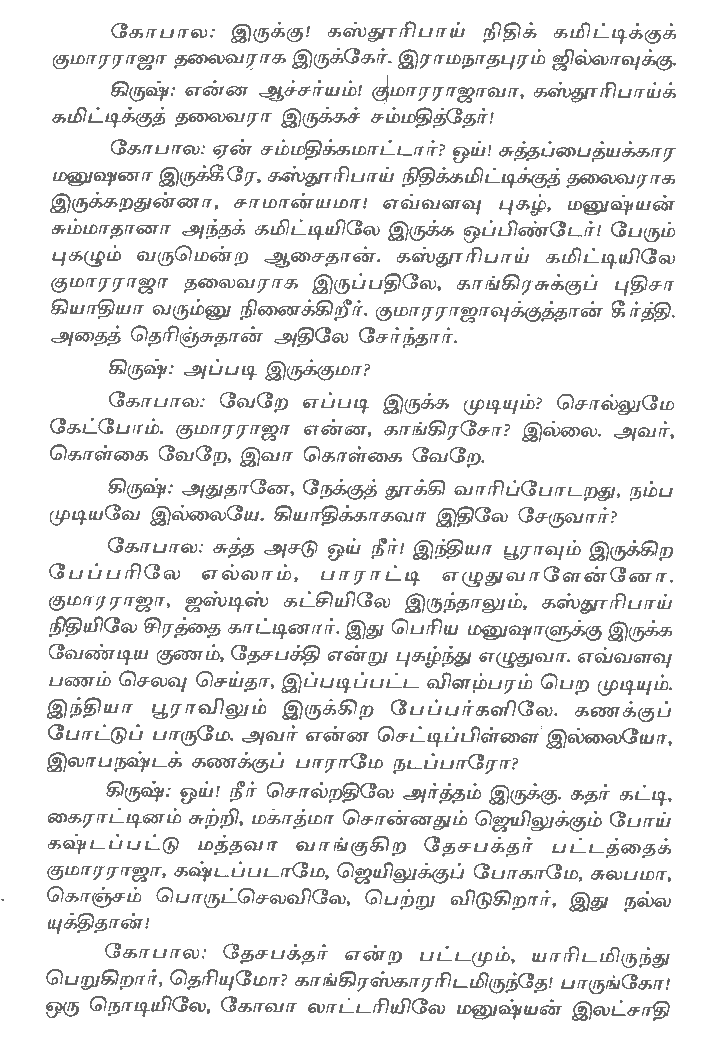 கோபால: இருக்கு! கஸ்தூரிபாய் நிதிக் கமிட்டிக்குக்
குமாரராஜா தலைவராக இருக்கேர். இராமநாதபுரம் ஜில்லாவுக்கு.
கிருஷ்: என்ன ஆச்சர்யம்! குமாரராஜாவா, கஸ்தூரிபாய்க்
கமிட்டிக்குத் தலைவரா இருக்கச் சம்மதித்தேர்!
கோபால: ஏன் சம்மதிக்கமாட்டார்? ஒய்! சுத்தப்பைத்யக்கார
மனுஷனா இருக்கீரே, கஸ்தூரிபாய் நிதிக்கமிட்டிக்குத் தலைவராக
இருக்கறதுன்னா, சாமான்யமா! எவ்வளவு புகழ், மனுஷ்யன்
சும்மாதானா அந்தக் கமிட்டியிலே இருக்க ஒப்பிண்டேர்! பேரும்
புகழும் வருமென்ற ஆசைதான். கஸ்தூரிபாய் கமிட்டியிலே
குமாரராஜா தலைவராக இருப்பதிலே, காங்கிரசுக்குப் புதிசா
கியாதியா வரும்னு நினைக்கிறீர். குமாரராஜாவுக்குத்தான் கீர்த்தி.
அதைத் தெரிஞ்சுதான் அதிலே சேர்ந்தார்.
கிருஷ்: அப்படி இருக்குமா?
கோபால: வேறே எப்படி இருக்க முடியும்? சொல்லுமே
கேட்போம். குமாரராஜா என்ன, காங்கிரசோ? இல்லை. அவர்,
கொள்கை வேறே, இவா கொள்கை வேறே.
கிருஷ்: அதுதானே, நேக்குத் தூக்கி வாரிப்போடறது, நம்ப
முடியவே இல்லையே. கியாதிக்காகவா இதிலே சேருவார்?
கோபால: சுத்த அசடு ஒய் நீர்! இந்தியா பூராவும் இருக்கிற
பேப்பரிலே எல்லாம், பாராட்டி எழுதுவாளேன்னோ.
குமாரராஜா, ஜஸ்டிஸ் கட்சியிலே இருந்தாலும், கஸ்தூரிபாய்
நிதியிலே சிரத்தை காட்டினார். இது பெரிய மனுஷாளுக்கு இருக்க
வேண்டிய குணம், தேசபக்தி என்று புகழ்ந்து எழுதுவா. எவ்வளவு
பணம் செலவு செய்தா, இப்படிப்பட்ட விளம்பரம் பெற முடியும்.
இந்தியா பூராவிலும் இருக்கிற பேப்பர்களிலே. கணக்குப்
போட்டுப் பாருமே. அவர் என்ன செட்டிப்பிள்ளை இல்லையோ,
இலாபநஷ்டக் கணக்குப் பாராமே நடப்பாரோ?
கிருஷ்: ஒய்! நீர் சொல்றதிலே அர்த்தம் இருக்கு. கதர் கட்டி,
கைராட்டினம் சுற்றி, மகாத்மா சொன்னதும் ஜெயிலுக்கும் போய்
கஷ்டப்பட்டு மத்தவா வாங்குகிற தேசபக்தர் பட்டத்தைக்
குமாரராஜா, கஷ்டப்படாமே, ஜெயிலுக்குப் போகாமே, சுலபமா,
கொஞ்சம் பொருட்செலவிலே, பெற்று விடுகிறார், இது நல்ல
யுக்திதான்!
கோபால: தேசபக்தர் என்ற பட்டமும், யாரிடமிருந்து
பெறுகிறார், தெரியுமோ? காங்கிரஸ்காரரிடமிருந்தே! பாருங்கோ!
ஒரு நொடியிலே, கோவா லாட்டரியிலே மனுஷ்யன் இலட்சாதி